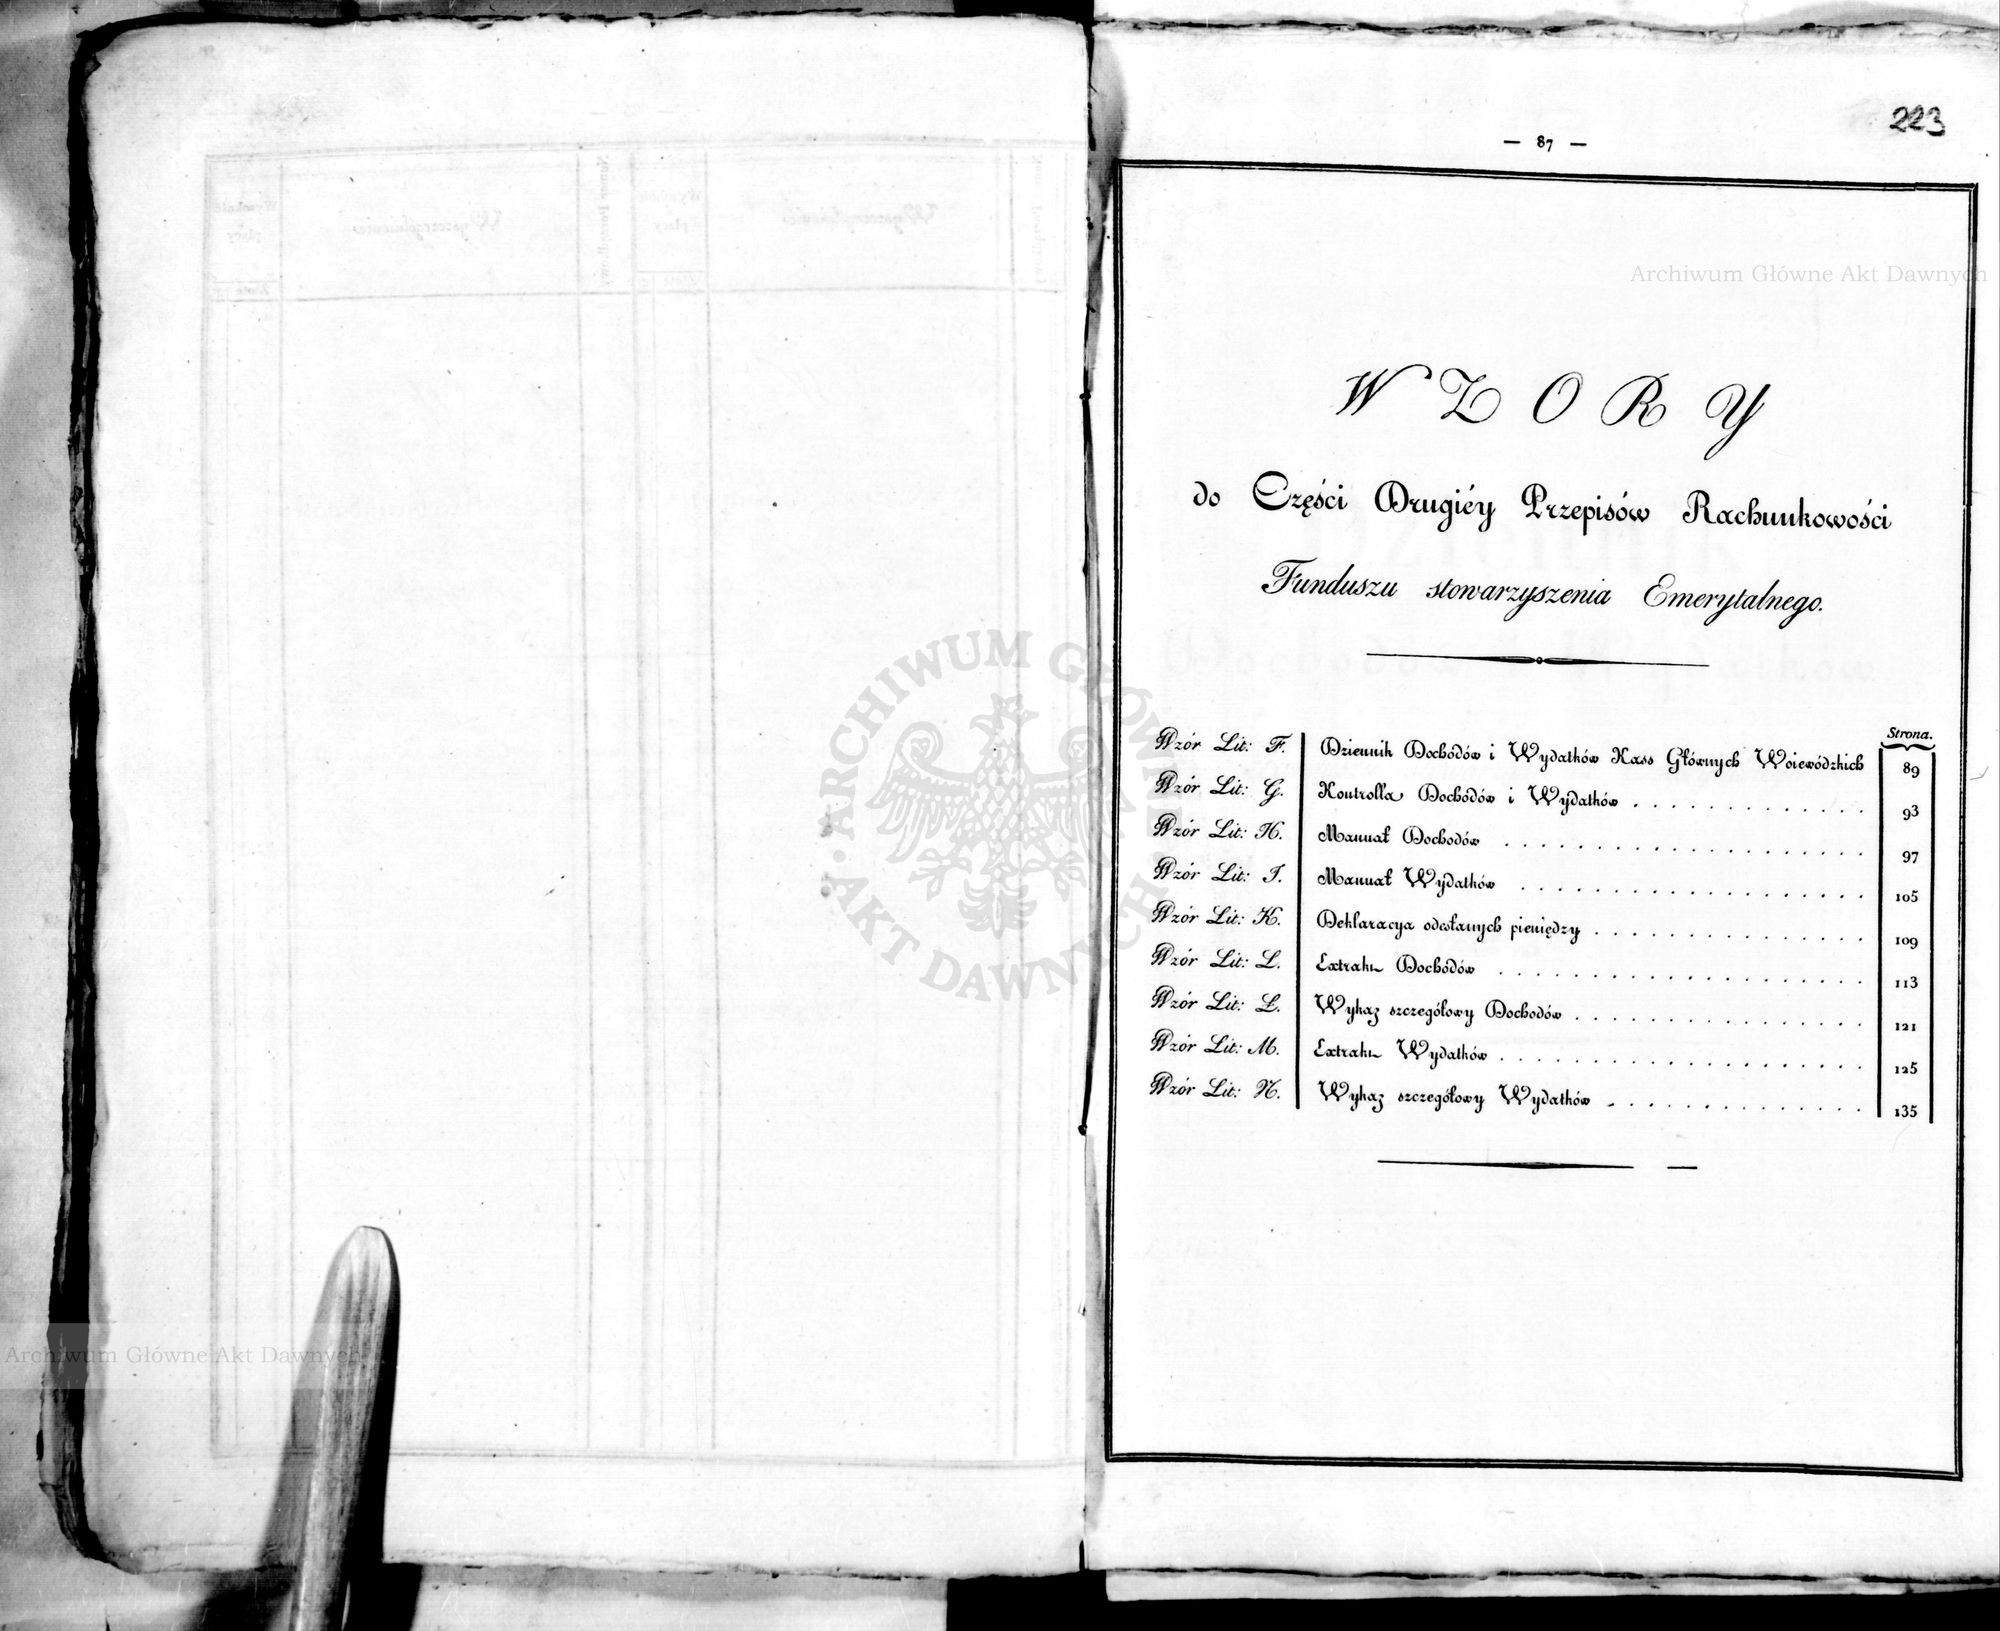 223
— 87 —
Archiwum Główne Akt Dawnych
WZORY
do Części Drugiéy Przepisów Rachunkowości
Funduszu stowarzyszenia Emerytalnego.
Strona.
Wzór Lit: F. Dziennik Dochodów i Wydatków Kass Głównych Woiewódzkich 89
Wzór Lit: G. Kontrolla Dochodów i Wydatków . . . . . . . . . . . . . 93
Wzór Lit: H. Manuał Dochodów . . . . . . . . . . . . . . . . . . . . 97
Wzór Lit: I. Manuał Wydatków . . . . . . . . . . . . . . . . . . . 105
Wzór Lit: K. Deklaracya odesłanych pieniędzy . . . . . . . . . . . . . . . 109
Wzór Lit: L. Extrakt Dochodów . . . . . . . . . . . . . . . . . . . . 113
Wzór Lit: Ł. Wykaz szczegółowy Dochodów . . . . . . . . . . . . . . . . 121
Wzór Lit: M. Extrakt Wydatków . . . . . . . . . . . . . . . . . . . . 125
Wzór Lit: N. Wykaz szczegółowy Wydatków . . . . . . . . . . . . . . 135
ARCHIWUM GŁÓWNE
AKT DAWNYCH
Archiwum Główne Akt Dawnych